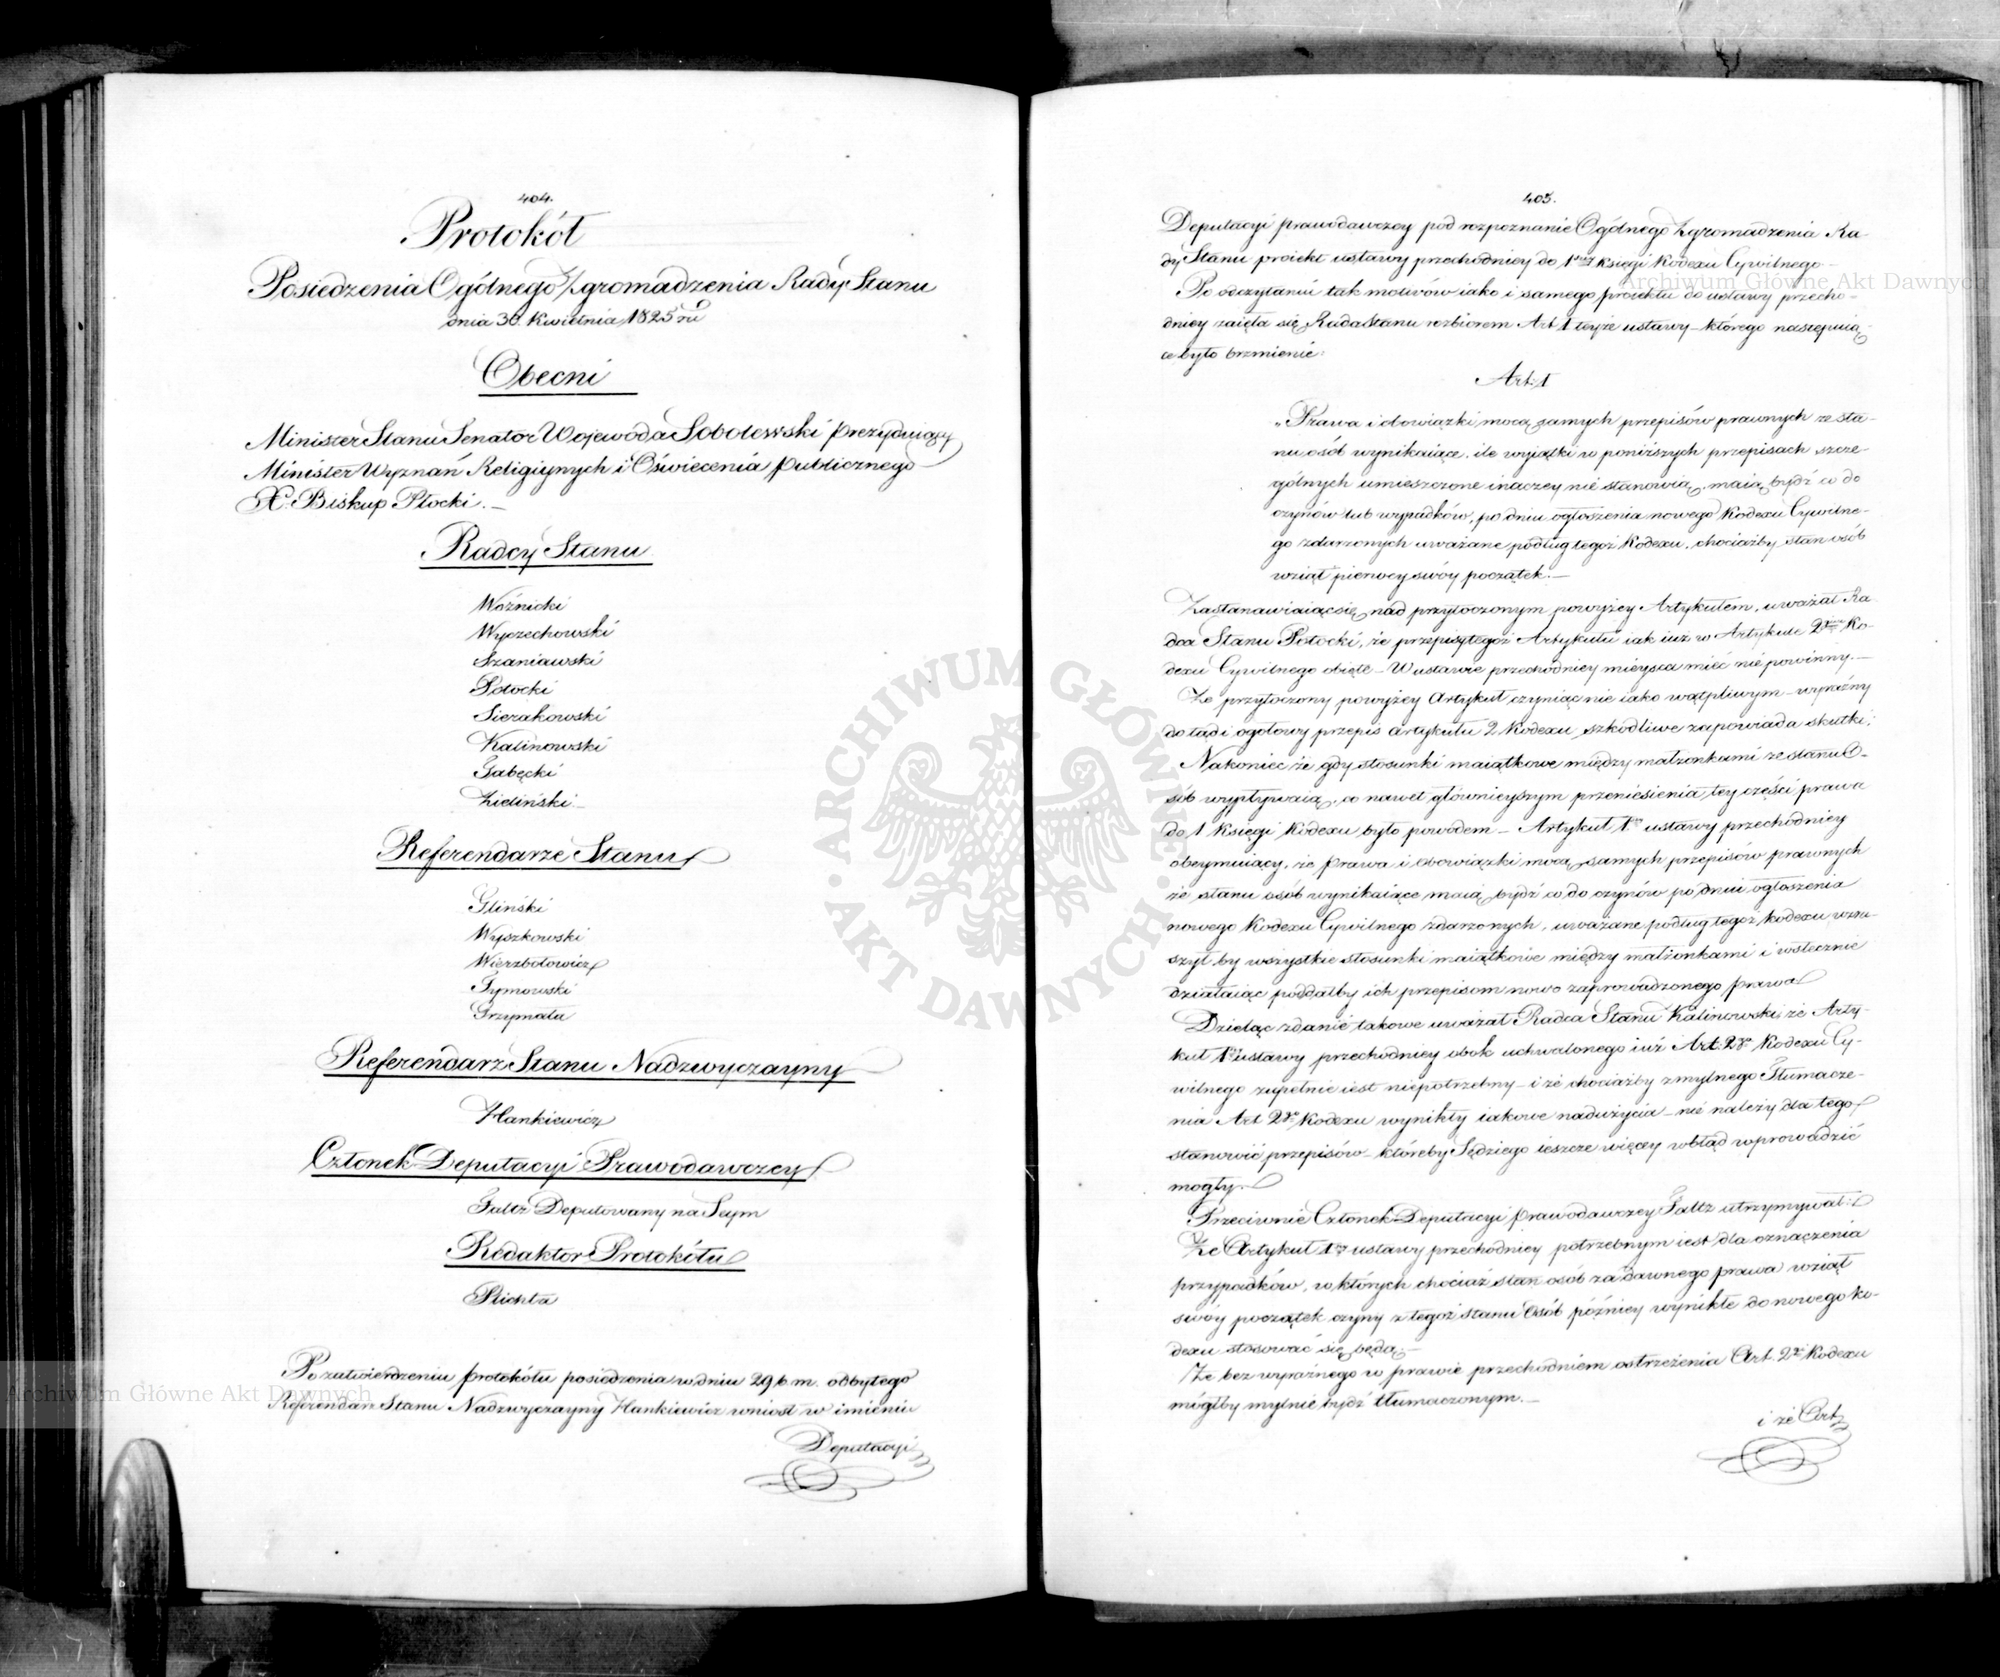 404.
Protokół
Posiedzenia Ogólnego Zgromadzenia Rady Stanu
dnia 30. Kwietnia 1825 ru
Obecni
Minister Stanu Senator Wojewoda Sobolewski Prezydujący
Minister Wyznań Religiynych i Oświecenia publicznego
X. Biskup Płocki.—
Radcy Stanu
Woźnicki
Wyczechowski
Szaniawski
Potocki
Sierakowski
Kalinowski
Gabęcki
Zieliński
Referendarze Stanu
Gliński
Wyszkowski
Wierzbołowicz
Tymowski
Grzymała
Referendarz Stanu Nadzwyczayny
Hankiewicz
Członek Deputacyi Prawodawczey
Faltz Deputowany na Seym
Redaktor Protokółu
Plichta
Po zatwierdzeniu protokółu posiedzenia w dniu 29 b. m. odbytego
Referendarz Stanu Nadzwyczayny Hankiewicz wniosł w imieniu
Deputacyi
405.
Deputacyi prawodawczey pod rozpoznanie Ogólnego Zgromadzenia Ra-
dy Stanu proiekt ustawy przechodniey do 1szey Księgi Kodexu Cywilnego—
Po odczytaniu tak motivów iako i samego proiektu do ustawy przecho-
dniey zaięła się Rada Stanu rozbiorem Art 1 teyże ustawy – którego następuią-
ce było brzmienie:
Art. 1
„Prawa i obowiązki mocą samych przepisów prawnych ze sta-
nu osób wynikaiące, ile wyiątki w poniższych przepisach szcze-
gólnych umieszczone inaczey nie stanowią, maią bydź co do
czynów lub wypadków, po dniu ogłoszenia nowego Kodexu Cywilne-
go zdarzonych uważane podług tegoż Kodexu, chociażby stan osób
wziął pierwey swóy początek.—
Zastanawiaiąc się nad przytoczonym powyżey Artykułem, uważał Ra-
dca Stanu Potocki, że przepisy tegoż Artykułu iak iuż w Artykule 2gim Ko-
dexu Cywilnego obięte – W ustawie przechodniey mieysca mieć nie powinny.—
Że przytoczony powyżey Artykuł czyniąc nie iako wątpliwym – wyraźny
do tąd i ogółowy przepis Artykułu 2 Kodexu szkodliwe zapowiada skutki;
Nakoniec że gdy stosunki maiątkowe między małżonkami ze stanu O-
sób wypływaią, co nawet główniejszym przeniesienia tey części prawa
do 1 Księgi Kodexu było powodem – Artykuł 1. ustawy przechodniey
obeymuiący, że prawa i obowiązki mocą samych przepisów prawnych
ze stanu osób wynikaiące maią bydź co do czynów po dniu ogłoszenia
nowego Kodexu Cywilnego zdarzonych, uważane podług tegoż Kodexu wzru-
szył by wszystkie stosunki maiątkowe między małżonkami i wstecznie
działaiąc poddałby ich przepisom nowo zaprowadzonego prawa
Dzieląc zdanie takowe uważał Radca Stanu Kalinowski, że Arty-
kuł 1. ustawy przechodniey obok uchwalonego iuż Art. 2go Kodexu Cy-
wilnego zupełnie iest niepotrzebny – i że chociażby z mylnego Tłumacze-
nia Art 2go Kodexu wynikły iakowe nadużycia – nie należy dla tego
stanowić przepisów – któreby Sędziego ieszcze więcey w błąd wprowadzić
mogły.—
Przeciwnie Członek Deputacyi prawodawczey Faltz utrzymywał:
Że Artykuł 1szy ustawy przechodniey potrzebnym iest dla oznaczenia
przypadków, w których chociaż stan osób za dawnego prawa wziął
swóy początek czyny z tegoż stanu Osób późniey wynikłe do nowego Ko-
dexu stosować się będą.—
Że bez wyraźnego w prawie przechodniem ostrzeżenia Art. 2gi Kodexu
mógłby mylnie bydź tłumaczonym.—
i że Art.
ARCHIWUM GŁÓWNE AKT DAWNYCH
Archiwum Główne Akt Dawnych
Archiwum Główne Akt Dawnych
Archiwum Główne Akt Dawnych